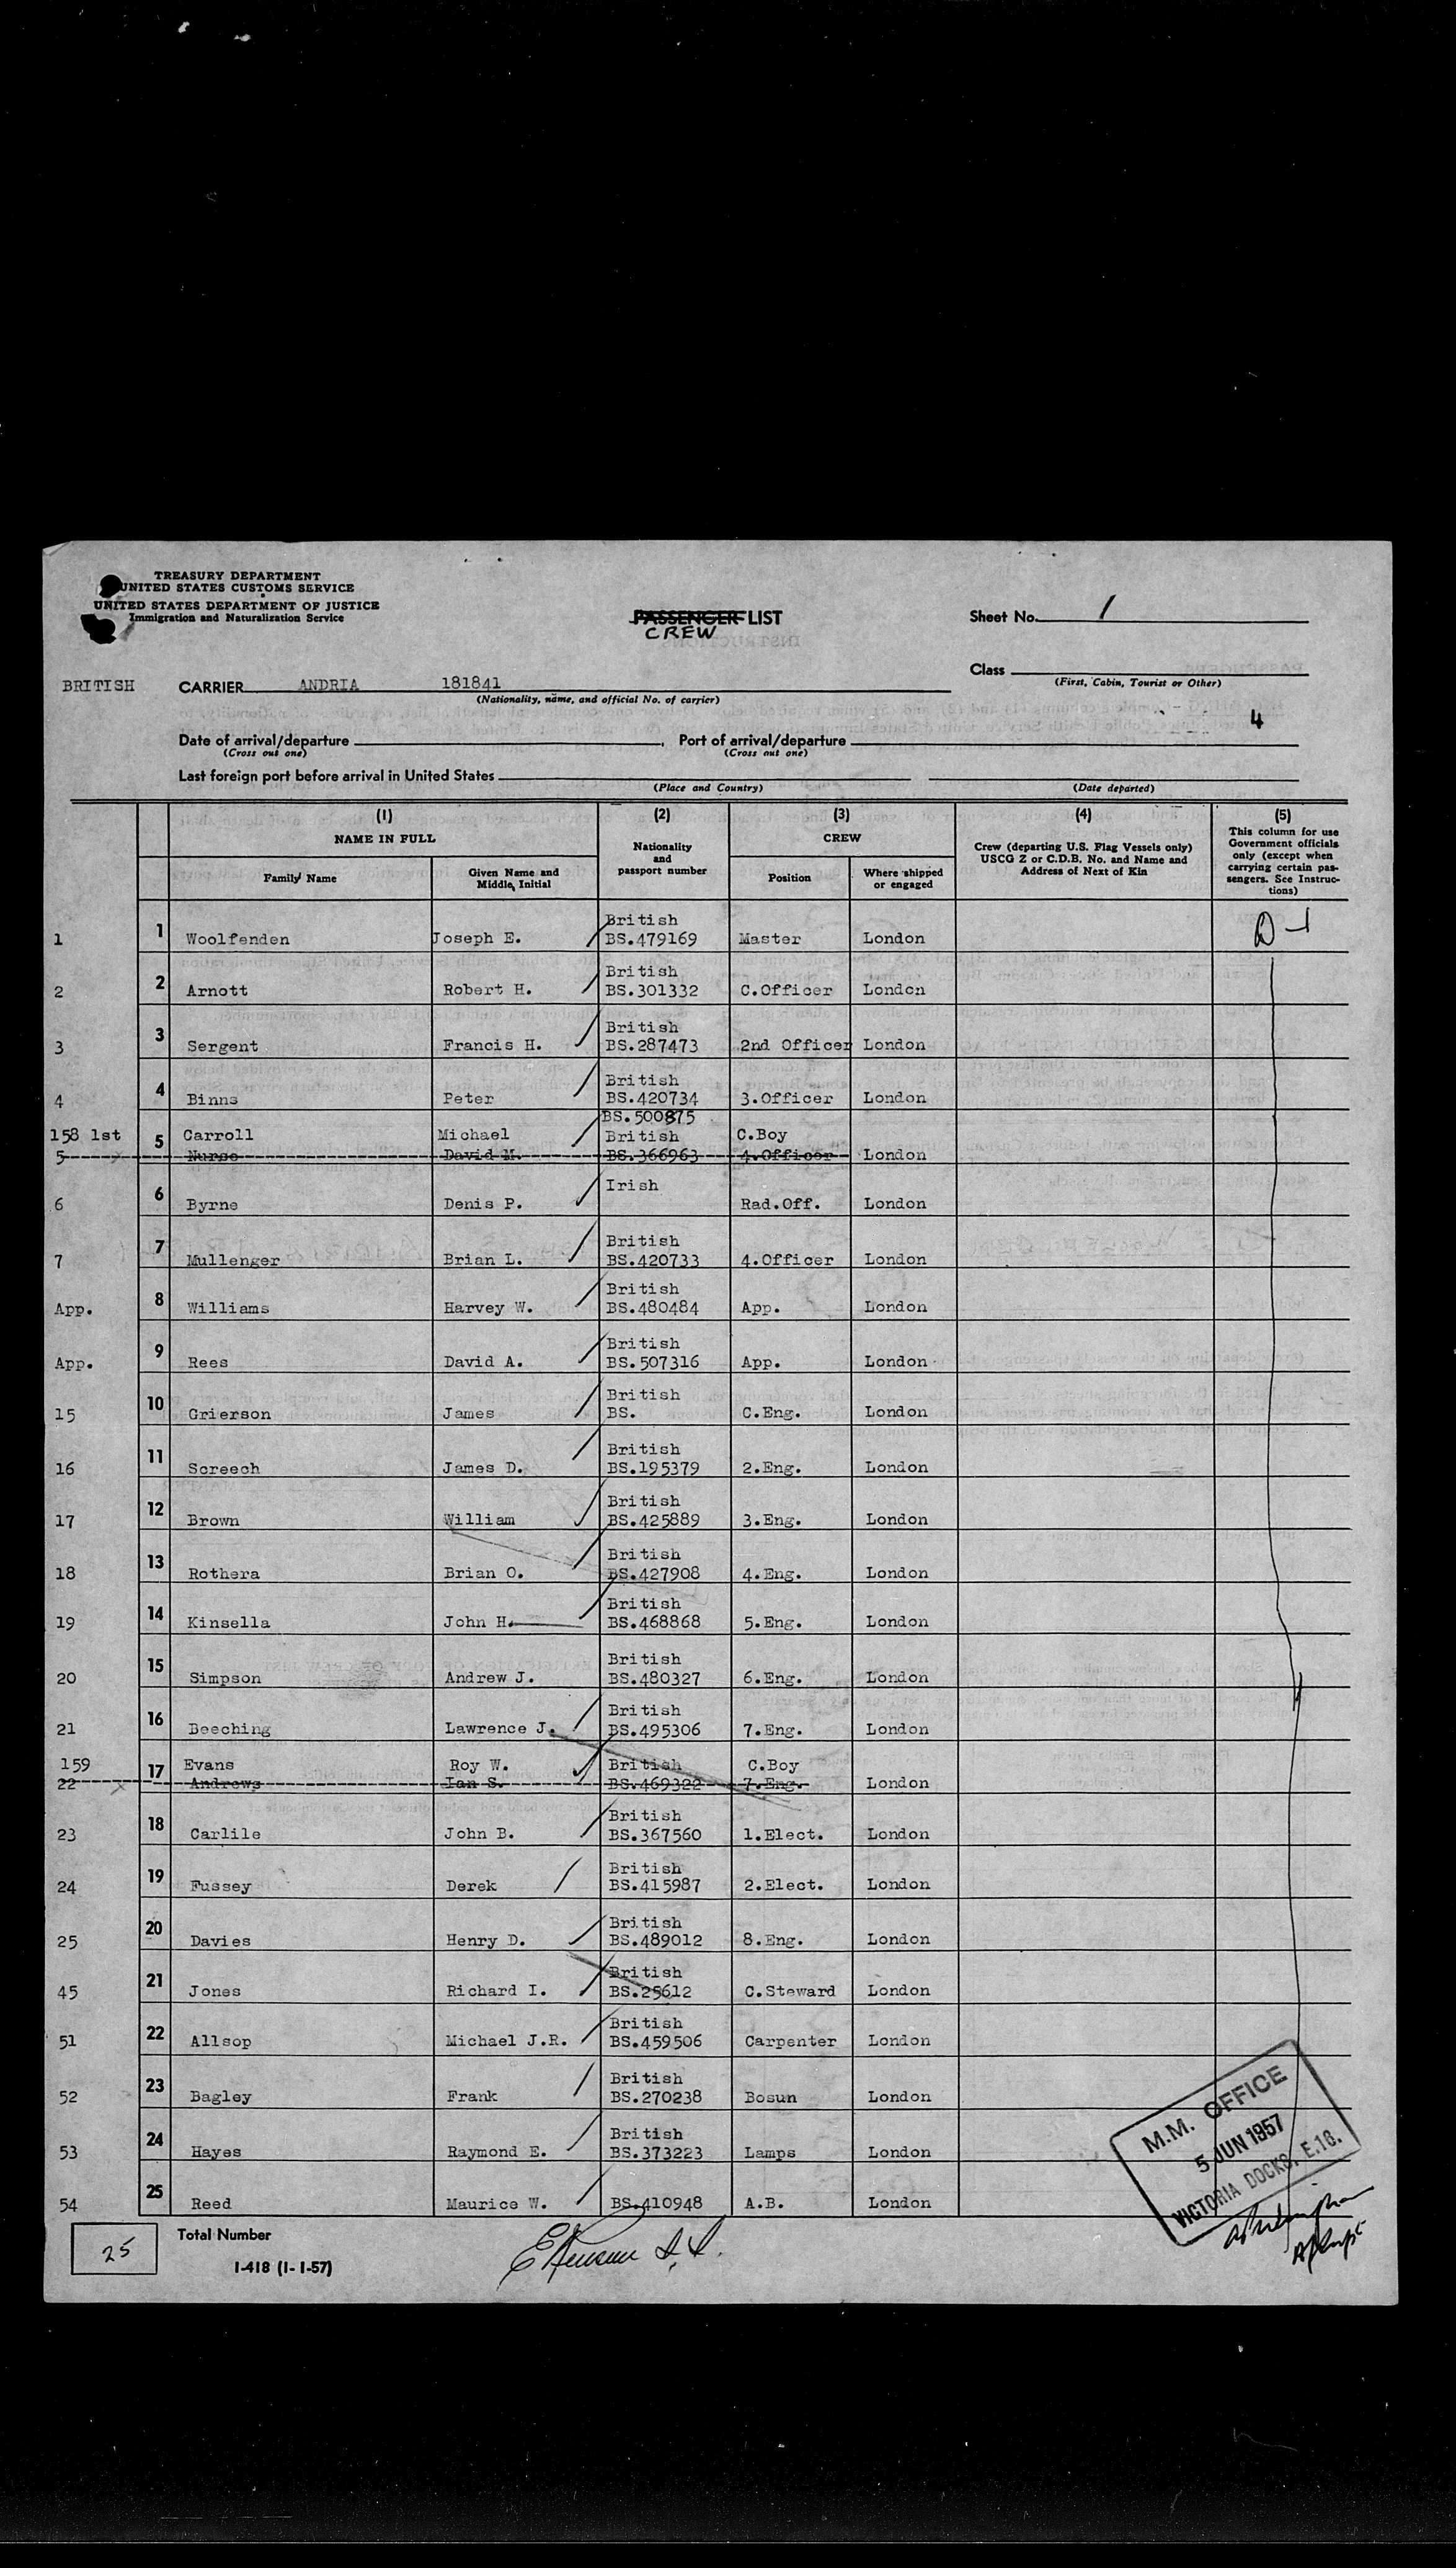 TREASURY DEPARTMENT
UNITED STATES CUSTOMS SERVICE
UNITED STATES DEPARTMENT OF JUSTICE
Immigration and Naturalization Service
PASSENGER LIST
CREW
Sheet No. 1
Class
(First, Cabin, Tourist or Other)
BRITISH CARRIER ANDRIA 181841
(Nationality, name, and official No. of carrier)
4
Date of arrival/departure , Port of arrival/departure
(Cross out one) (Cross out one)
Last foreign port before arrival in United States
(Place and Country) (Date departed)
(1) (2) (3) (4) (5)
NAME IN FULL
Family Name
Given Name and Middle Initial
Nationality and passport number
CREW
Position
Where shipped or engaged
Crew (departing U.S. Flag Vessels only) USCG Z or C.D.B. No. and Name and Address of Next of Kin
This column for use Government officials only (except when carrying certain passengers. See Instructions)
1 1 Woolfenden Joseph E. British BS.479169 Master London D-1
2 2 Arnott Robert H. British BS.301332 C.Officer London
3 3 Sergent Francis H. British BS.287473 2nd Officer London
4 4 Binns Peter British BS.420734 3.Officer London
158 1st 5 Carroll Michael BS.500875 British C.Boy
5 Nurse David M. BS.366963 4.Officer London
6 6 Byrne Denis P. Irish Rad.Off. London
7 7 Mullenger Brian L. British BS.420733 4.Officer London
App. 8 Williams Harvey W. British BS.480484 App. London
App. 9 Rees David A. British BS.507316 App. London
15 10 Grierson James British BS. C.Eng. London
16 11 Screech James D. British BS.195379 2.Eng. London
17 12 Brown William British BS.425889 3.Eng. London
18 13 Rothera Brian O. British BS.427908 4.Eng. London
19 14 Kinsella John H. British BS.468868 5.Eng. London
20 15 Simpson Andrew J. British BS.480327 6.Eng. London
21 16 Beeching Lawrence J. British BS.495306 7.Eng. London
159 17 Evans Roy W. British C.Boy
22 Andrews Ian S. BS.469322 7.Eng. London
23 18 Carlile John B. British BS.367560 1.Elect. London
24 19 Fussey Derek British BS.415987 2.Elect. London
25 20 Davies Henry D. British BS.489012 8.Eng. London
45 21 Jones Richard I. British BS.25612 C.Steward London
51 22 Allsop Michael J.R. British BS.459506 Carpenter London
52 23 Bagley Frank British BS.270238 Bosun London
53 24 Hayes Raymond E. British BS.373223 Lamps London
54 25 Reed Maurice W. BS.410948 A.B. London
M.M. OFFICE
5 JUN 1957
VICTORIA DOCKS, E.16.
25 Total Number
I-418 (1-1-57)